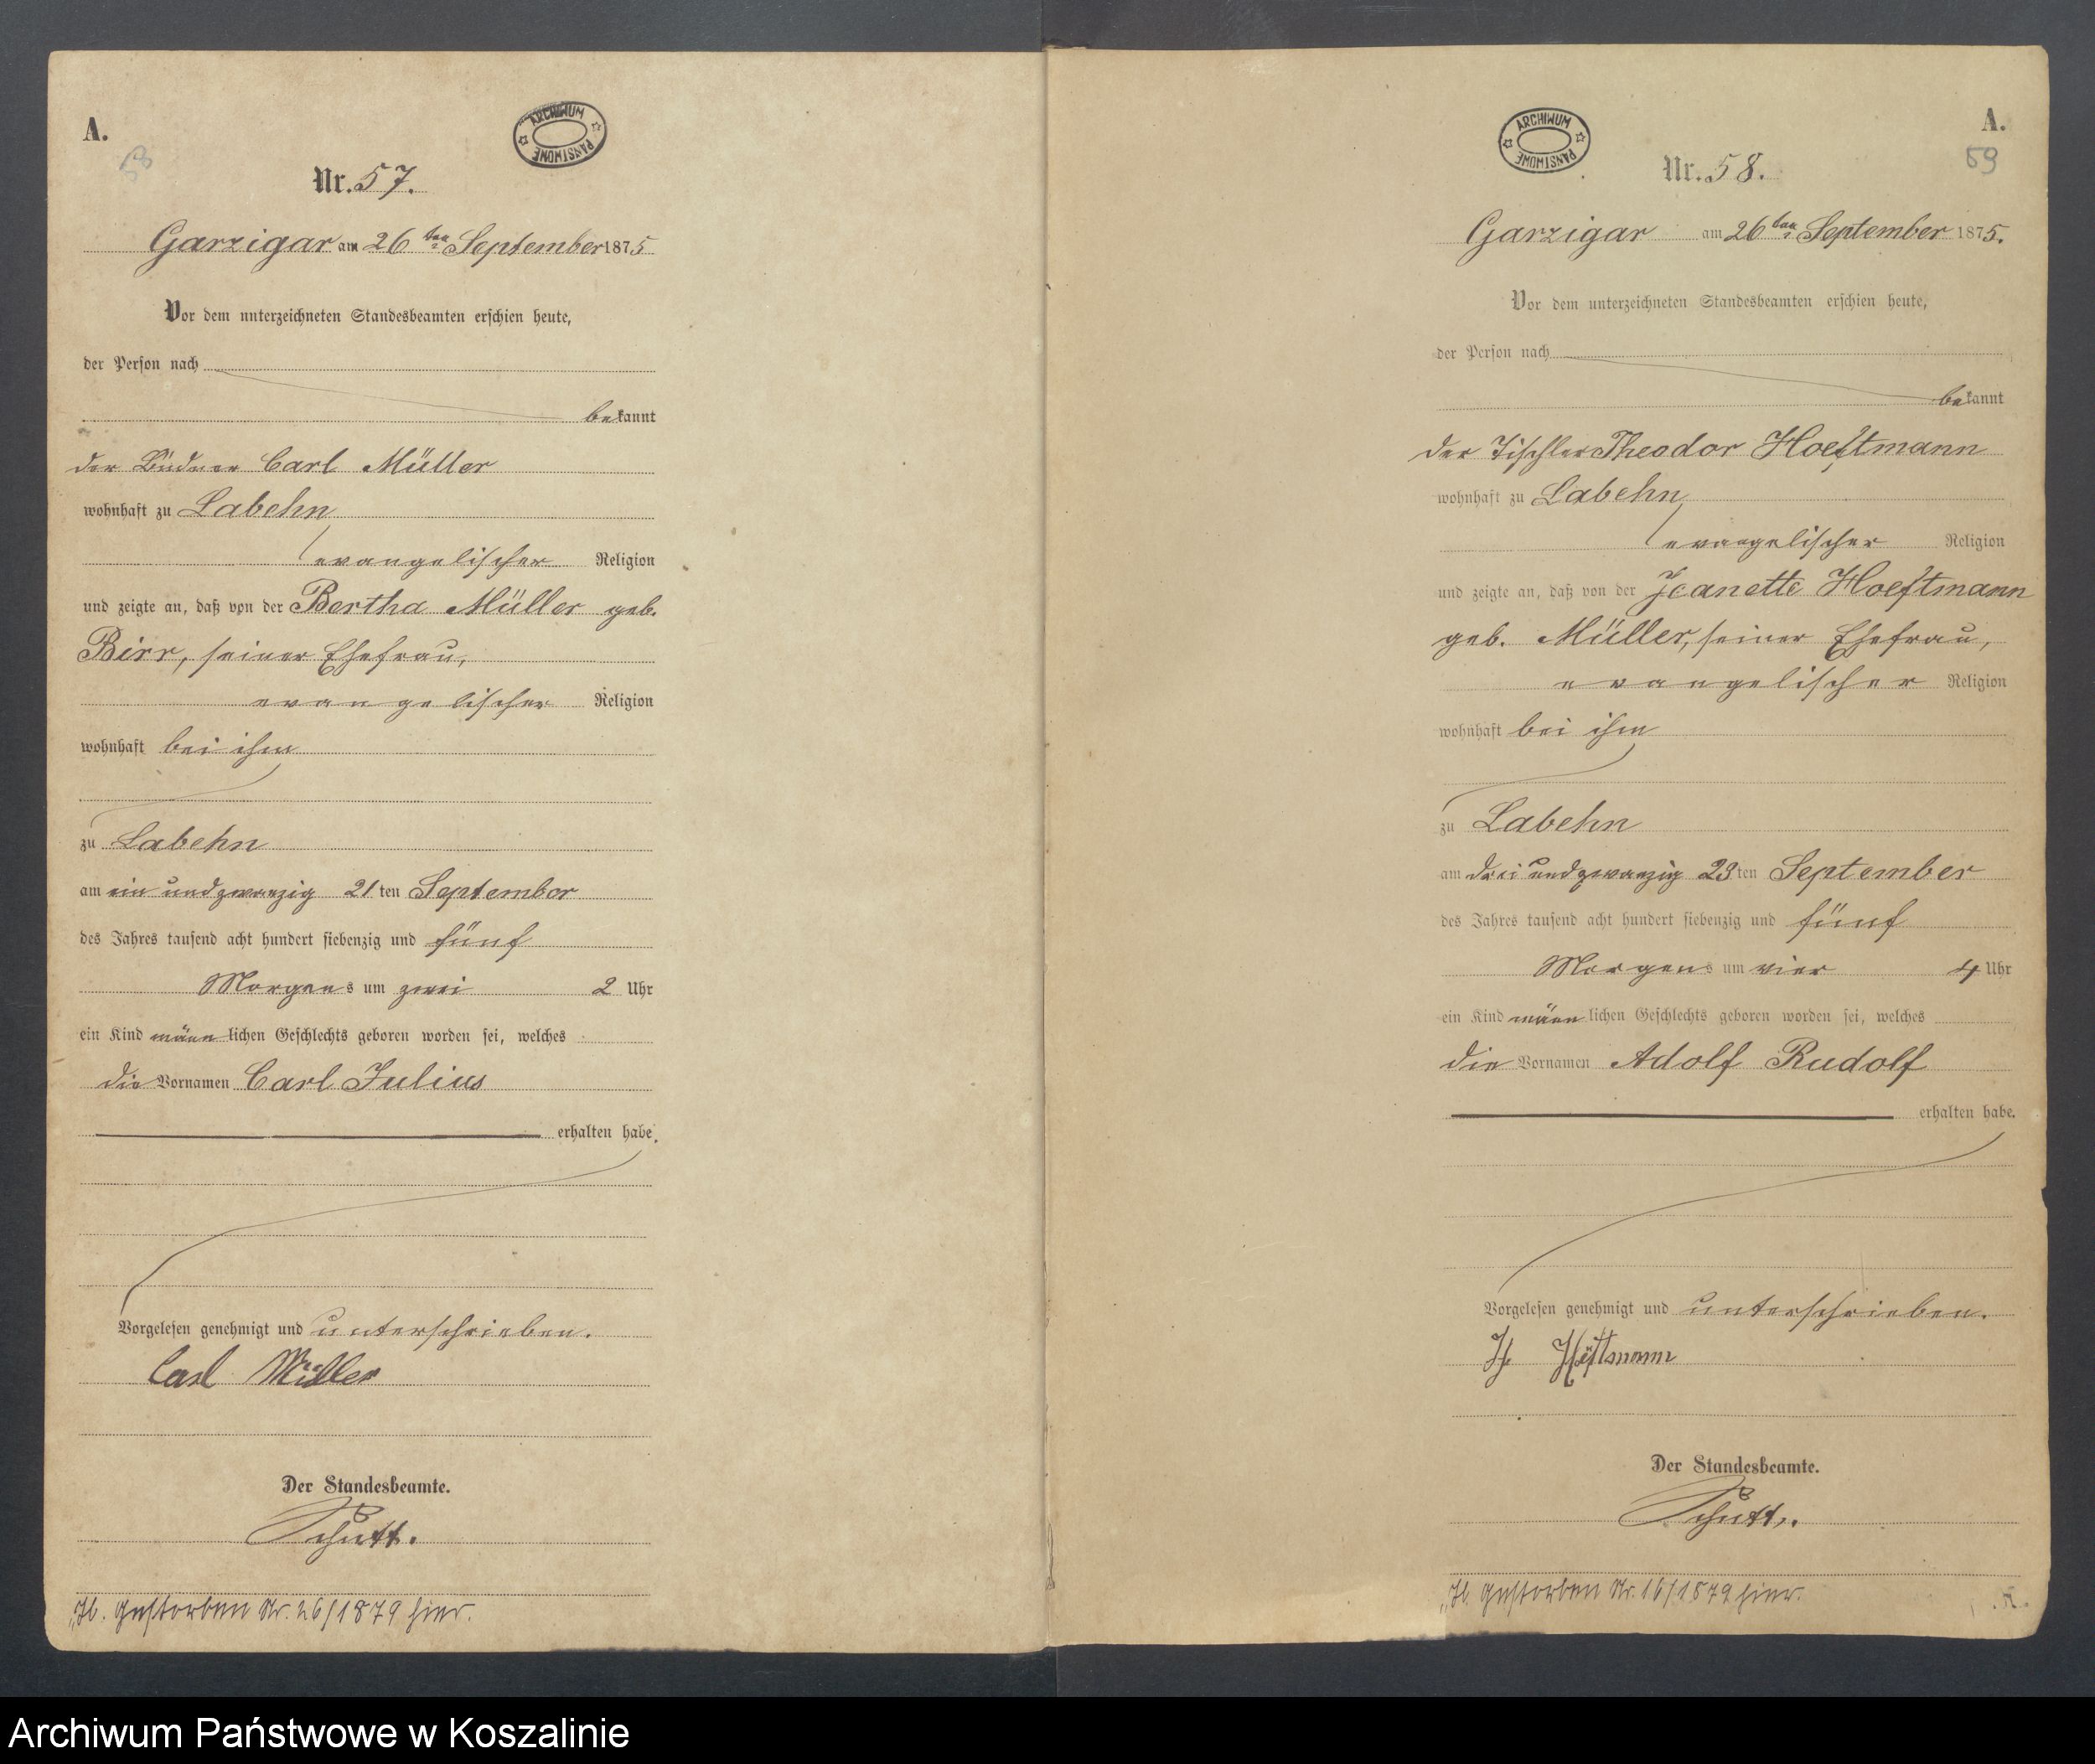 A.
58
ARCHIWUM PAŃSTWOWE
Nr. 57.
Garzigar am 26ten September 1875
Vor dem unterzeichneten Standesbeamten erschien heute,
der Person nach
bekannt
der Büdner Carl Müller
wohnhaft zu Labehn
evangelischer Religion
und zeigte an, daß von der Bertha Müller geb.
Birr, seiner Ehefrau,
evangelischer Religion
wohnhaft bei ihm
zu Labehn
am ein und zwanzig 21ten September
des Jahres tausend acht hundert siebenzig und fünf
Morgens um zwei 2 Uhr
ein Kind männlichen Geschlechts geboren worden sei, welches
die Vornamen Carl Julius
erhalten habe.
Vorgelesen genehmigt und unterschrieben.
Carl Müller
Der Standesbeamte.
Schutt.
gestorben Nr. 26/1879 hier.
A.
59
ARCHIWUM PAŃSTWOWE
Nr. 58.
Garzigar am 26ten September 1875.
Vor dem unterzeichneten Standesbeamten erschien heute,
der Person nach
bekannt
der Tischler Theodor Hoeftmann
wohnhaft zu Labehn
evangelischer Religion
und zeigte an, daß von der Jeanette Hoeftmann
geb. Müller, seiner Ehefrau,
evangelischer Religion
wohnhaft bei ihm
zu Labehn
am drei und zwanzig 23ten September
des Jahres tausend acht hundert siebenzig und fünf
Morgens um vier 4 Uhr
ein Kind männlichen Geschlechts geboren worden sei, welches
die Vornamen Adolf Rudolf
erhalten habe.
Vorgelesen genehmigt und unterschrieben.
Höftmann
Der Standesbeamte.
Schutt.
gestorben Nr. 16/1879 hier.
Archiwum Państwowe w Koszalinie